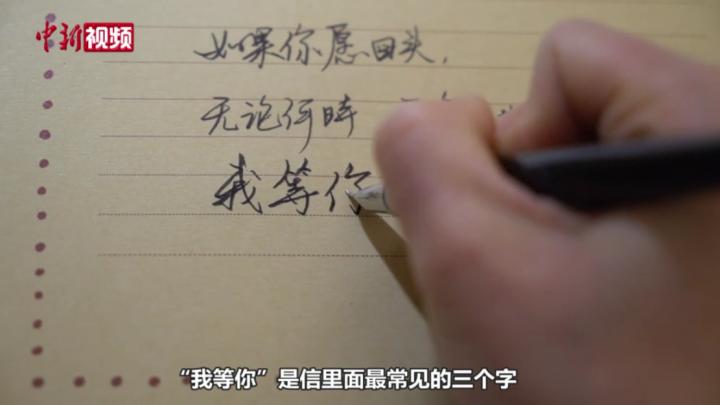 中新视频
如果你愿回头，
无论何时
我等你
“我等你”是信里面最常见的三个字